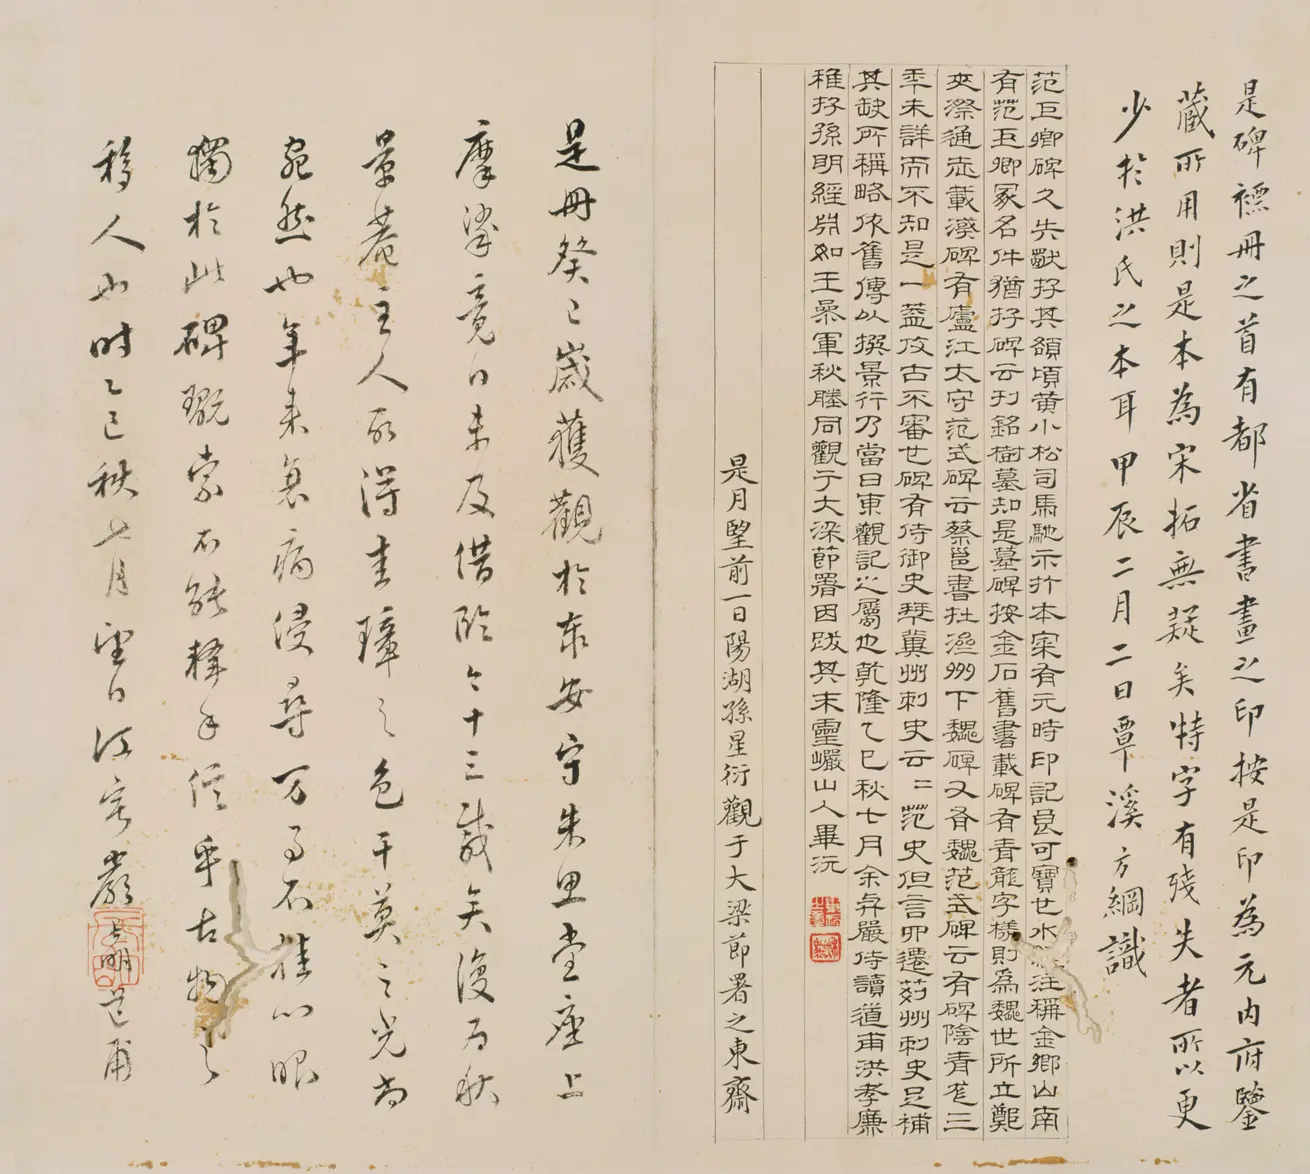 是碑褾冊之首有都省書畫之印按是印為元內府鑒
藏所用則是本為宋拓無疑矣特字有殘失者所以更
少於洪氏之本耳甲辰二月二日覃溪方綱識
范巨卿碑久失獸存其額頃黃小松司馬馳示拓本案有元時印記良可寶也水經注稱金鄉山南
有范巨卿冢名件猶存碑云刊銘樹墓知是墓碑按金石舊書載碑有青龍字樣則為魏世所立鄭
夾漈通志載漢碑有廬江太守范式碑云蔡邕書在濟州下魏碑又有魏范式碑云有碑陰青龍三
年未詳而不知是一蓋攷古不審也碑有侍御史栞冀州刺史云云范史但言卯遷荊州刺史足補
其缺所稱略依舊傳以撰景行乃當日東觀記之屬也乾隆乙巳秋七月余與嚴侍讀道甫洪孝廉
稚存孫明經淵如王參軍秋塍同觀于大梁節署因跋其末靈巖山人畢沅
是月朢前一日陽湖孫星衍觀于大梁節署之東齋
是冊癸巳歲獲觀於泰安守朱思堂座上
摩挲竟日未及借臨今十三載矣復為秋
景菴主人所得圭璋之色干莫之光尚
宛然也年來衰病侵尋万事不挂心眼
獨於此碑翫索不能釋手信乎古物之
移人也時乙巳秋七月望日江寧嚴長明道甫